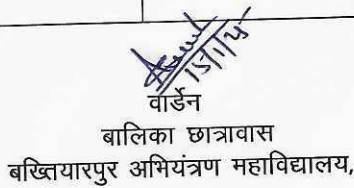 15/1/25
वार्डेन
बालिका छात्रावास
बख्तियारपुर अभियंत्रण महाविद्यालय,